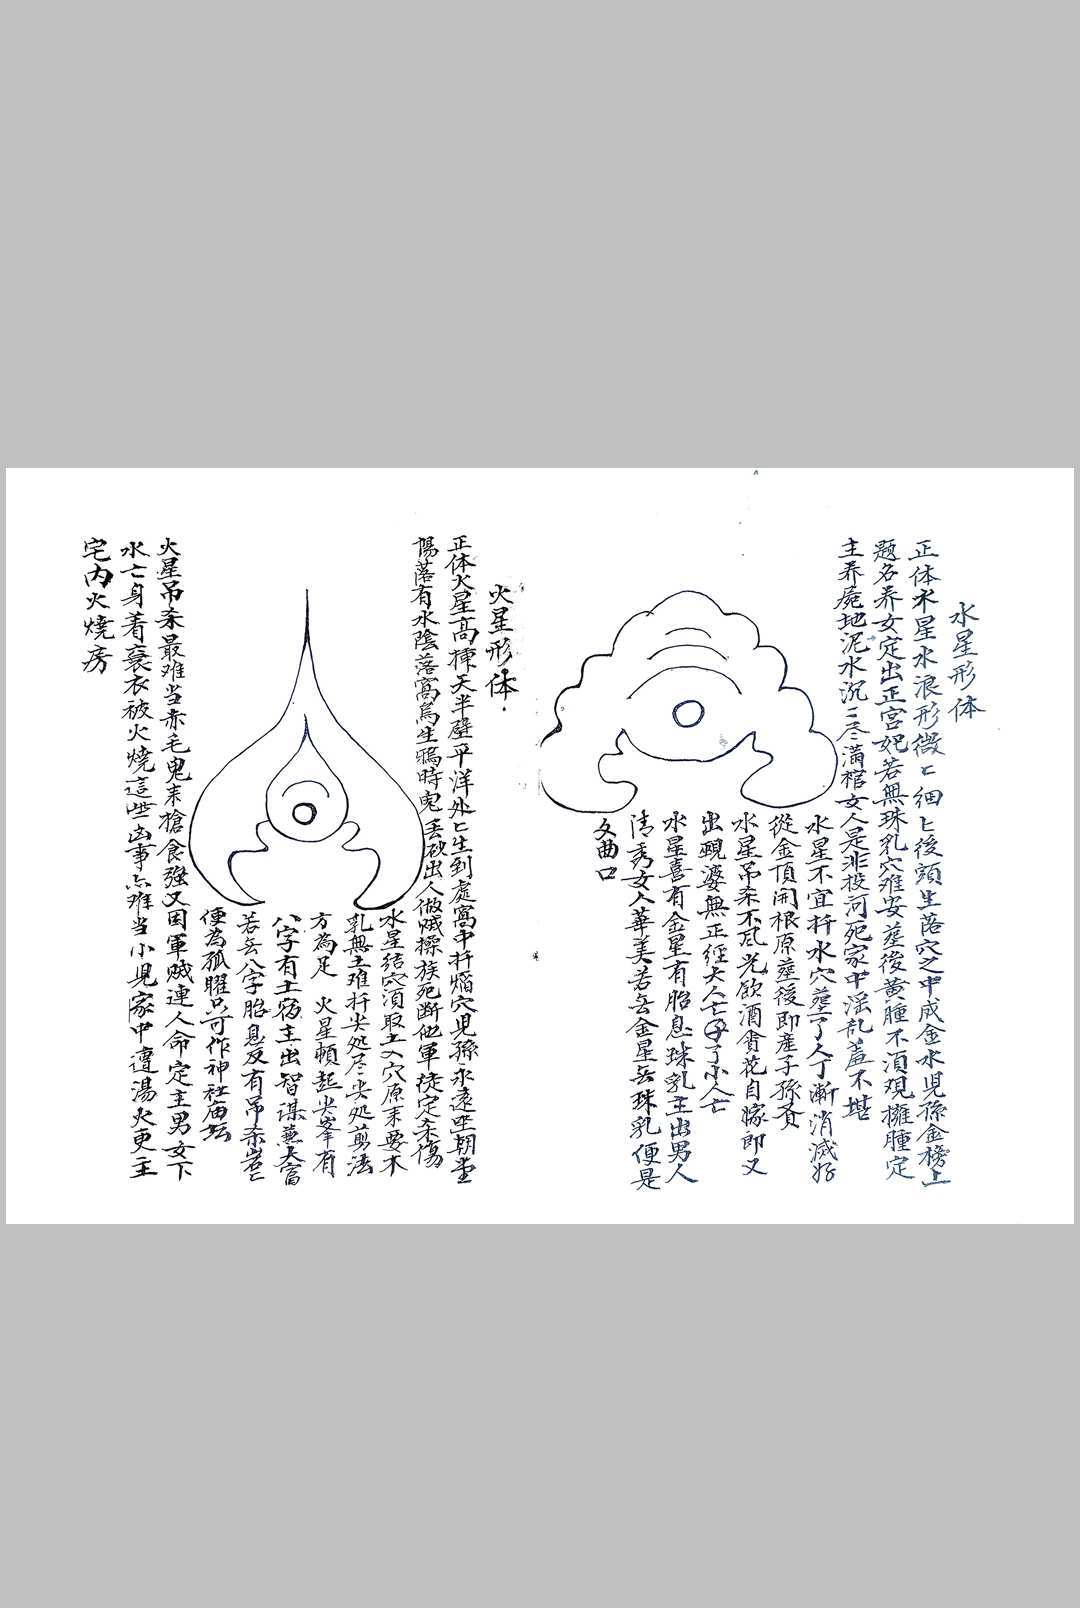 水星形体
正体水星水浪形微〻细〻後頭生落穴之中成金水児孫金榜上
题名养女定出正宫妃若無珠乳穴难安塟後黄腫不湏观擁腫定
主养屍地泥水沉〻尽满棺女人是非投河死家中淫乱羞不堪
水星不宜扦水穴塟了人丁漸消滅好
從金頂開根原塟後即産子孫贡
水星吊杀不风光飲酒貪花自嫁郎又
出覡婆無正經大人亡了小人亡
水星喜有金星有胎息珠乳主出男人
清秀女人華美若无金星无珠乳便是
文曲口
火星形体
正体火星高揀天半壁平洋处〻生到處窩中扦焰穴児孫永遠坐朝堂
陽落有水陰落窩鳥生鴉時鬼丢砂出人做贼操族死断他軍徒定杀傷
水星结穴湏取土入穴原来要木
乳無土难扦尖处尽尖处剪法
方為足 火星頓起尖峯有
八字有土宿主出智谋蕉大富
若无八字胎息反有吊杀岩〻
便為孤曜只可作神社庙坛
火星吊杀最难当赤毛鬼来搶食强又因軍贼連人命定主男女下
水亡身着蓑衣被火燒這些凶事亦难当小児家中遭湯火更主
宅内火燒房